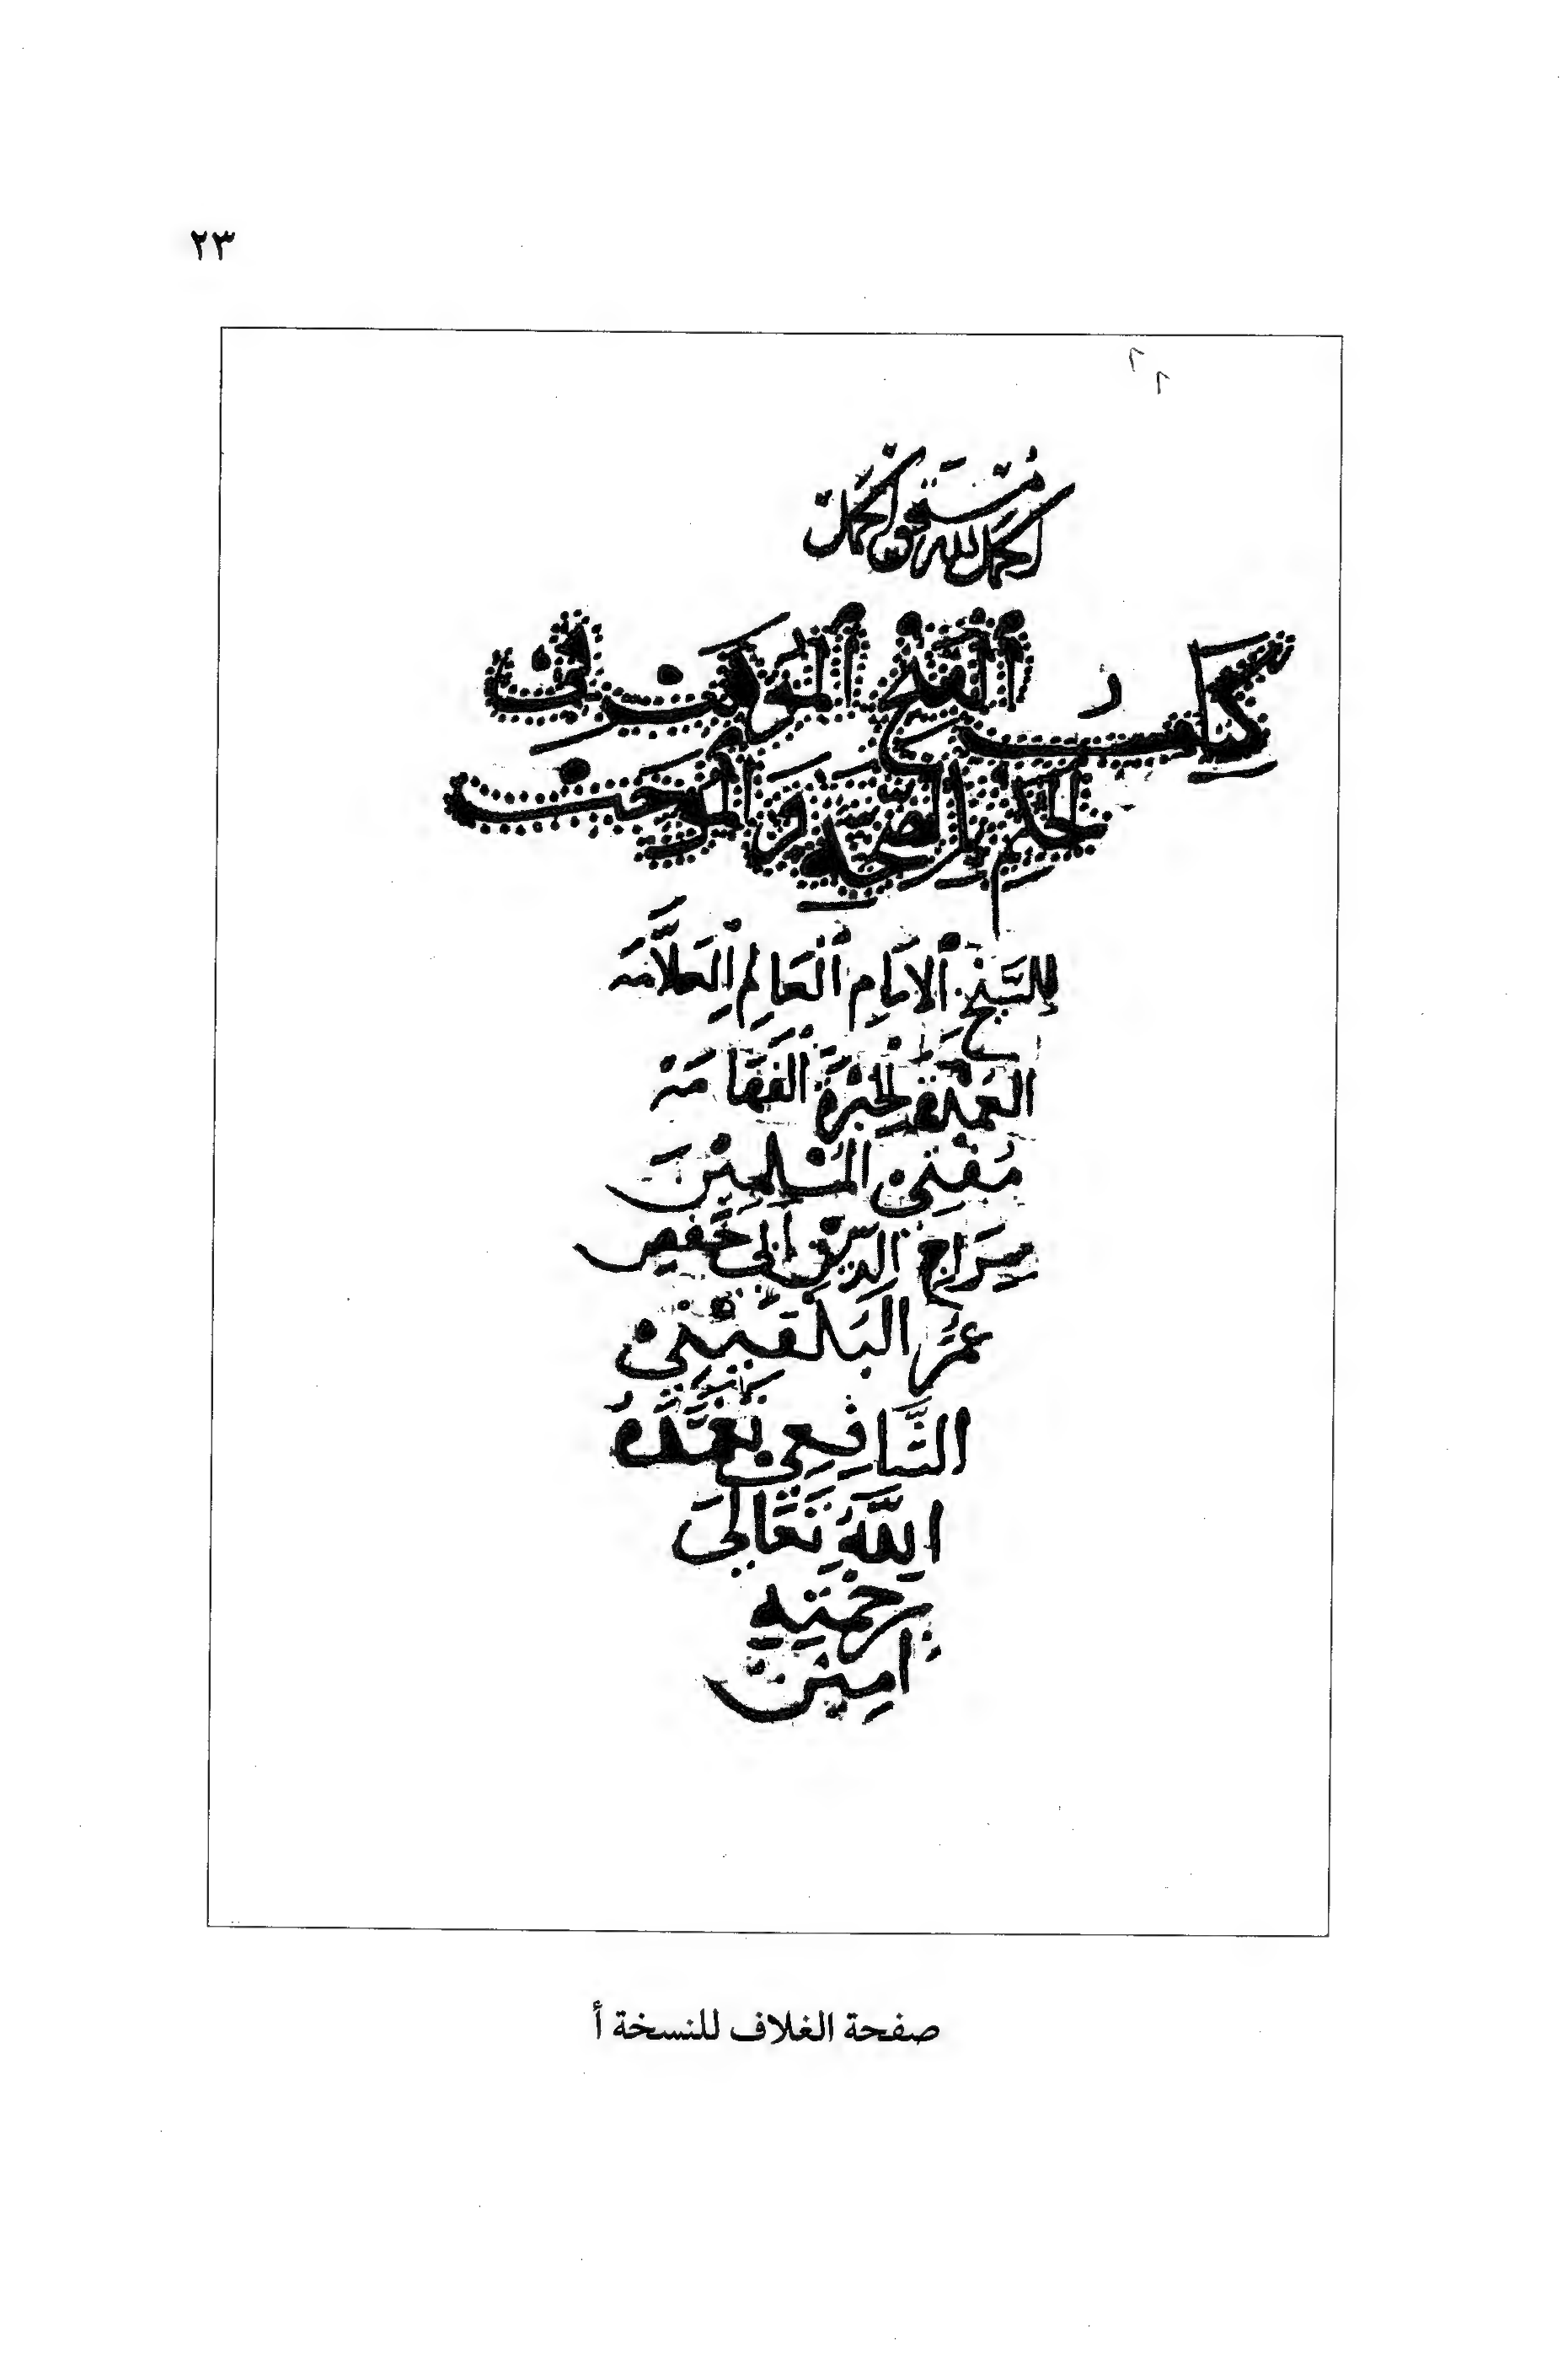 ٢٣
الحمد لله مستحق الحمد
كتاب الفتح الموهب في
الحكم بالصحة والموجب
للشيخ الإمام العالم العلامة
العمدة الحبرة الفهامة
مفتي المسلمين
سراج الدين أبي حفص
عمر البلقيني
الشافعي تغمده
الله تعالى
برحمته
امين
صفحة الغلاف للنسخة أ